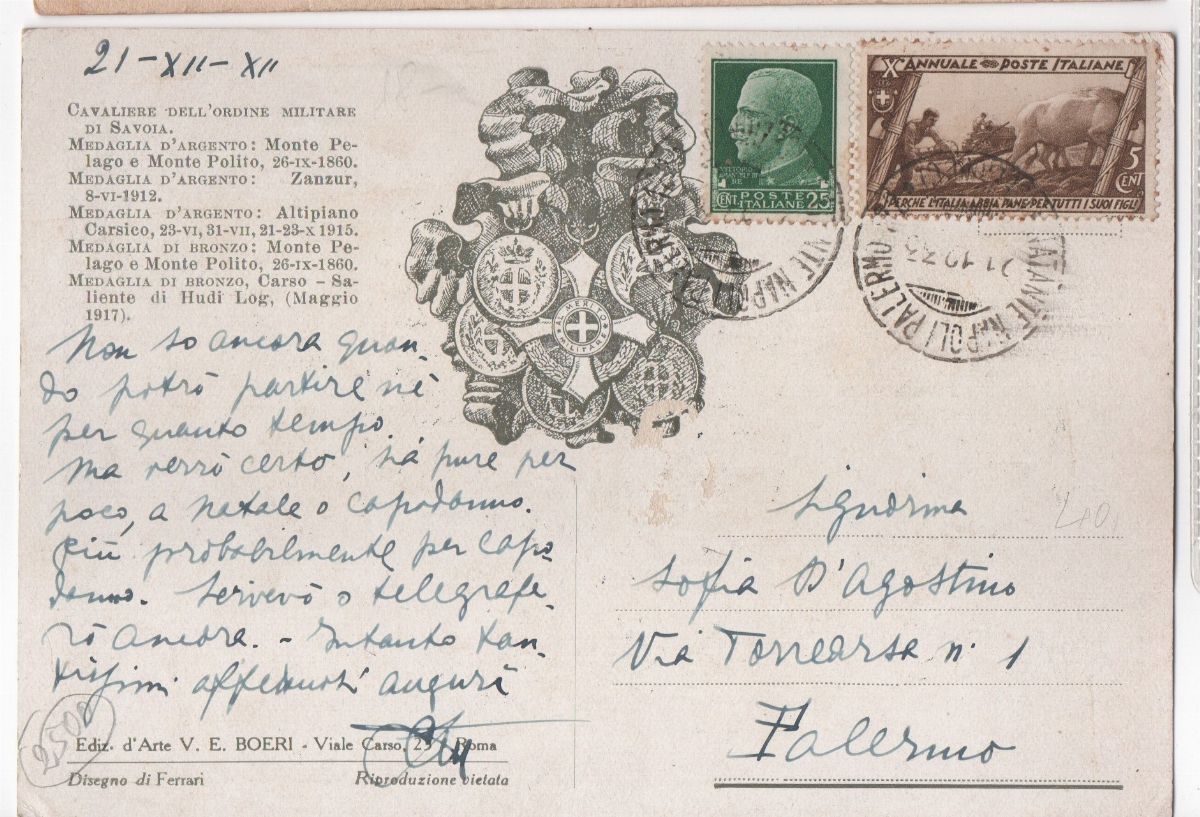 21-XII-XII
CAVALIERE DELL'ORDINE MILITARE
DI SAVOIA.
MEDAGLIA D'ARGENTO: Monte Pe-
lago e Monte Polito, 26-IX-1860.
MEDAGLIA D'ARGENTO: Zanzur,
8-VI-1912.
MEDAGLIA D'ARGENTO: Altipiano
Carsico, 23-VI, 31-VII, 21-23-X 1915.
MEDAGLIA DI BRONZO: Monte Pe-
lago e Monte Polito, 26-IX-1860.
MEDAGLIA DI BRONZO, Carso - Sa-
liente di Hudi Log, (Maggio
1917).
Non so ancora quan-
do potrò partire nè
per quanto tempo
Ma verrò certo, sia pure per
poco, a Natale o capodanno.
Più probabilmente per capo-
danno. Scriverò o telegrafe-
rò ancora. - Intanto tan-
tissimi affettuosi auguri
Ediz. d'Arte V. E. BOERI - Viale Carso, 23 Roma
Disegno di Ferrari Riproduzione vietata
2500
AL MERITO
MILITARE
VITTORIO
EMANUELE III
RE
POSTE
CENT. ITALIANE 25
X ANNUALE POSTE ITALIANE
5
CENT
PERCHE L'ITALIA ABBIA PANE PER TUTTI I SUOI FIGLI
NATANTE NAPOLI PALERMO
21.12.33
Signorina
Sofia D'Agostino
Via Torrearsa n. 1
Palermo